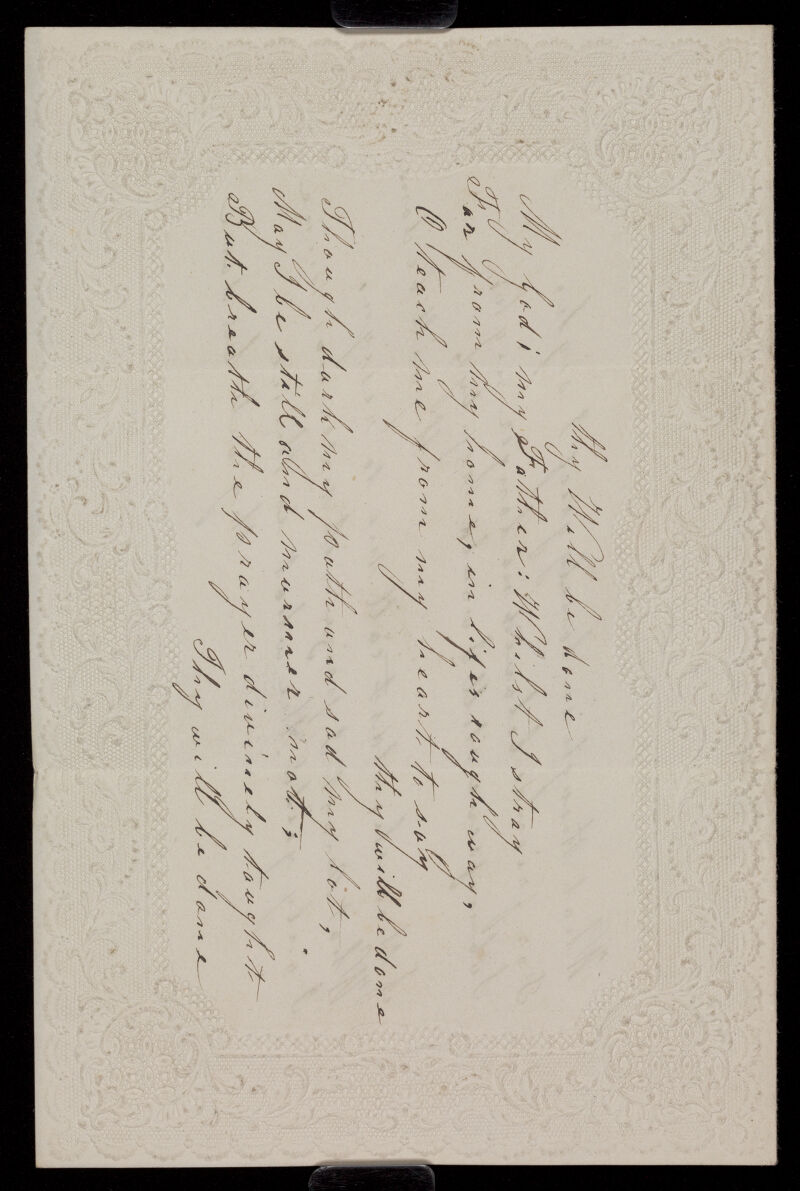 thy Will be done
My God; my Father: Whilst I stray
Far from my home, in lifes rough way,
O teach me from my heart to say
thy will be done
Though dark my path and sad my lot,
May I be still and murmer not;
But breath the prayer divinely tought
Thy will be done